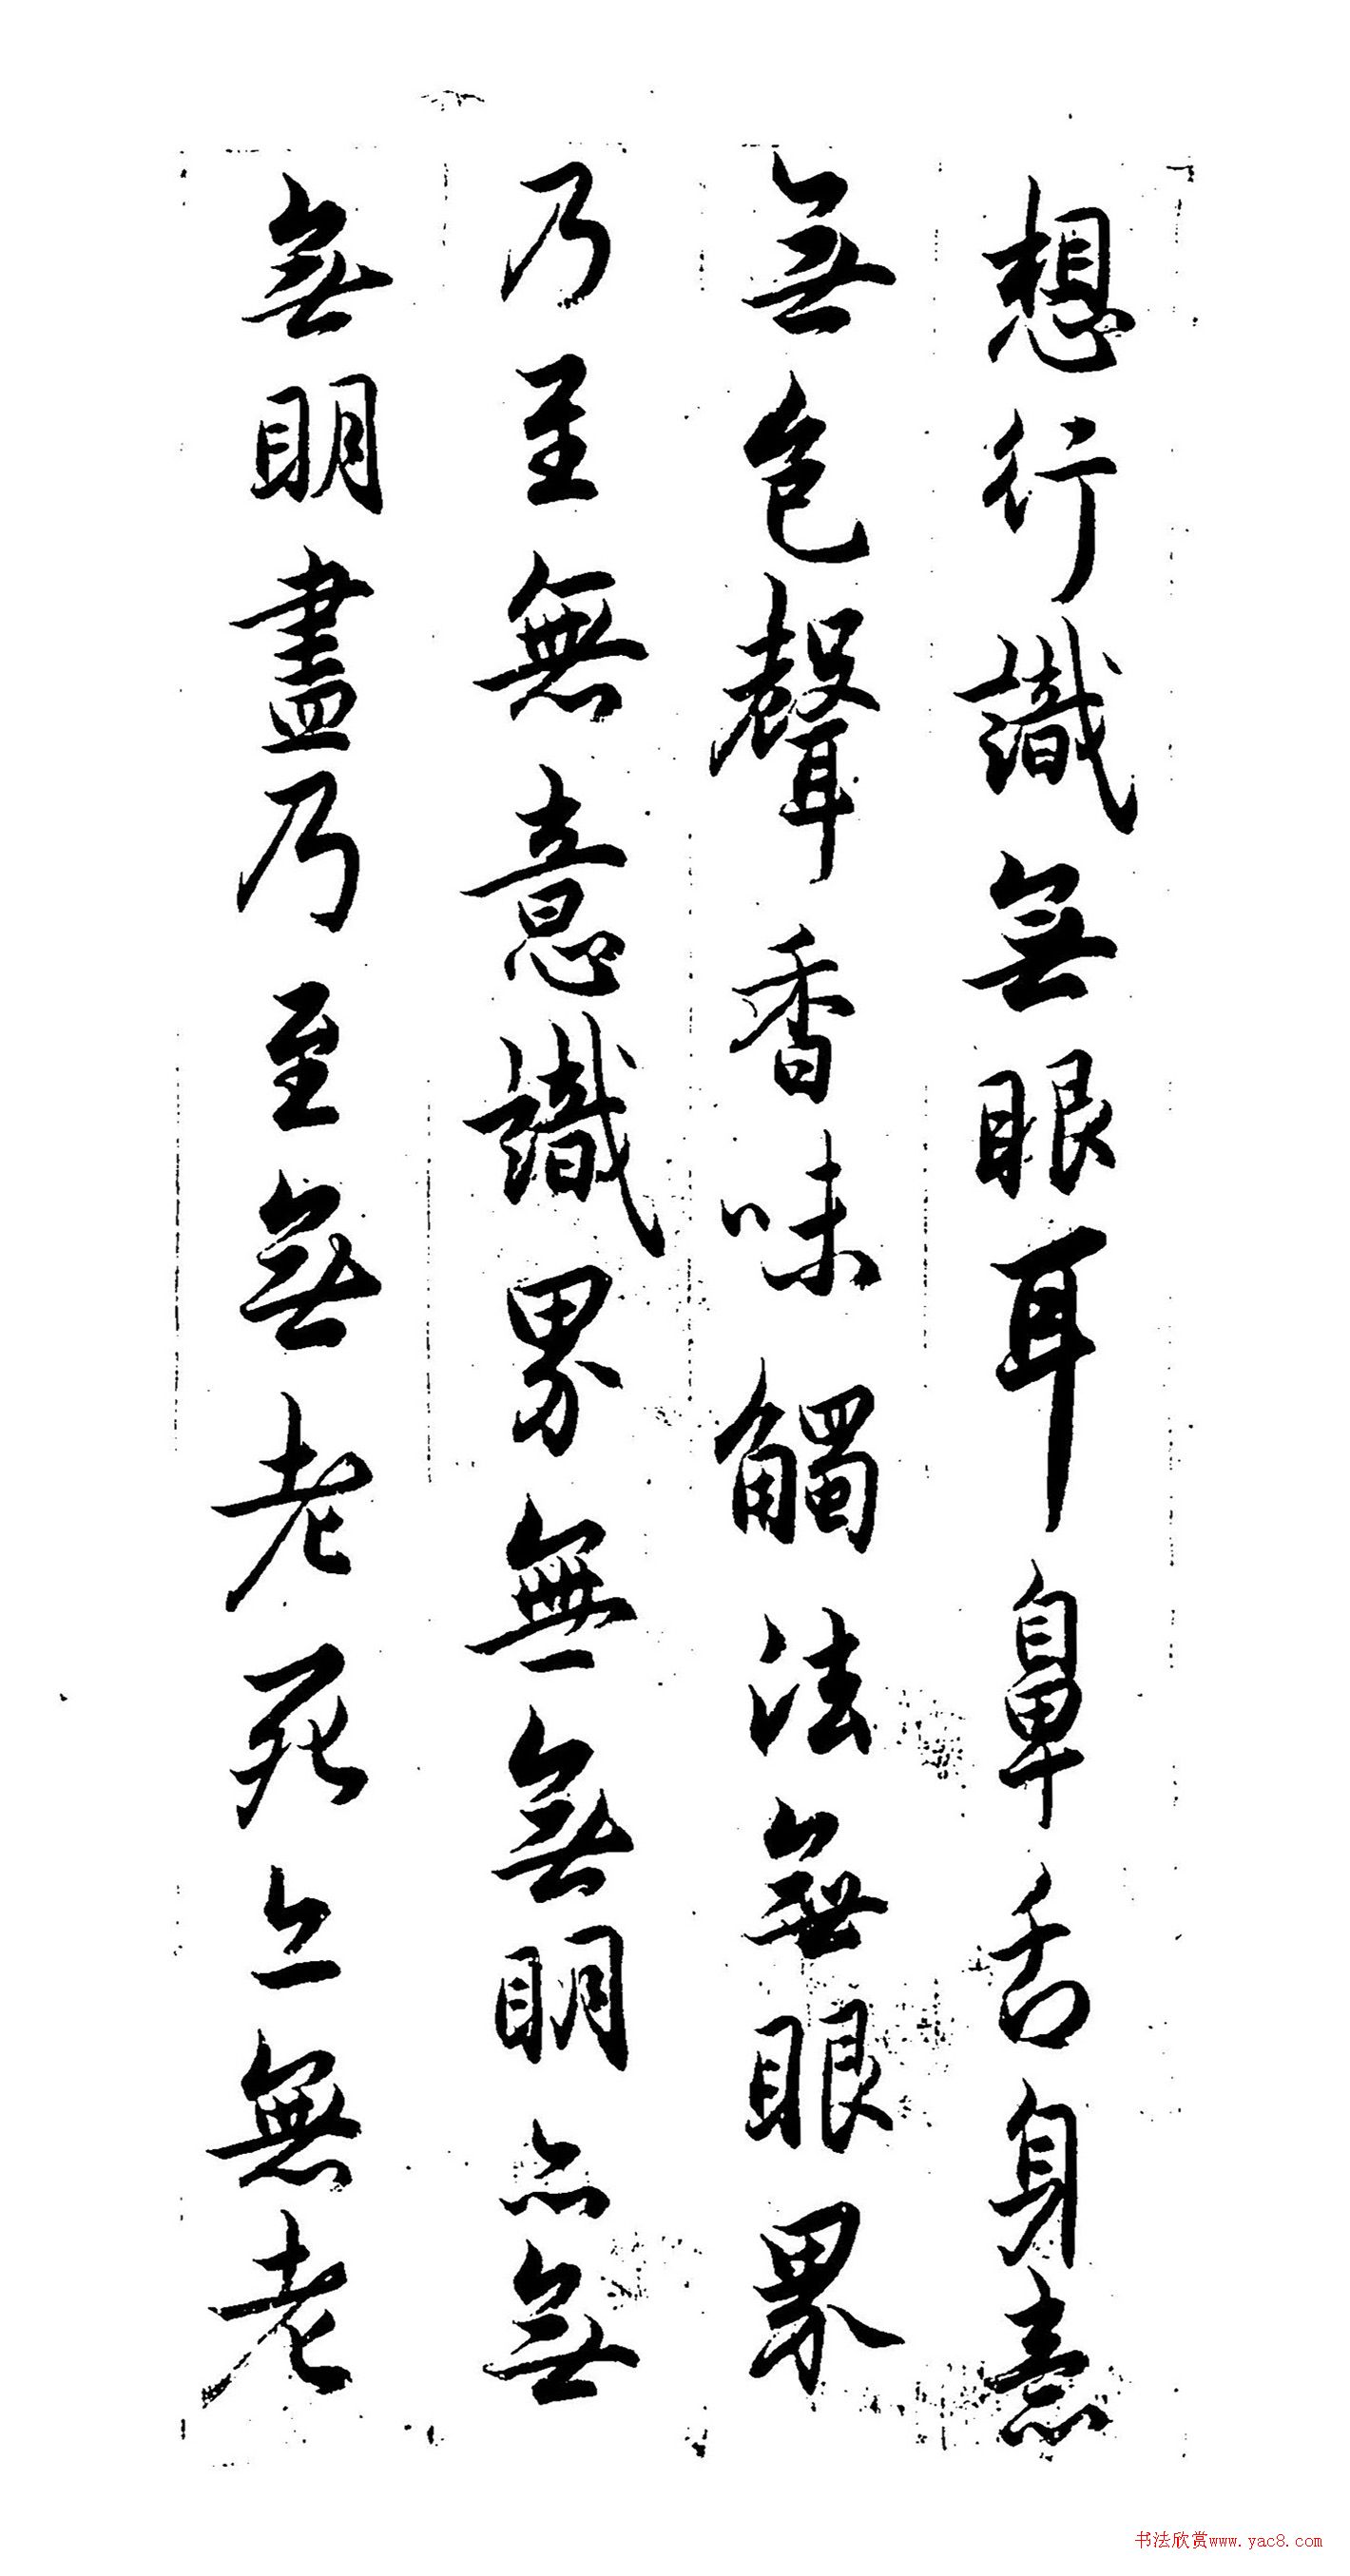 想行識無眼耳鼻舌身意
無色聲香味觸法無眼界
乃至無意識界無無明亦無
無明盡乃至無老死亦無老
书法欣赏www.yac8.com